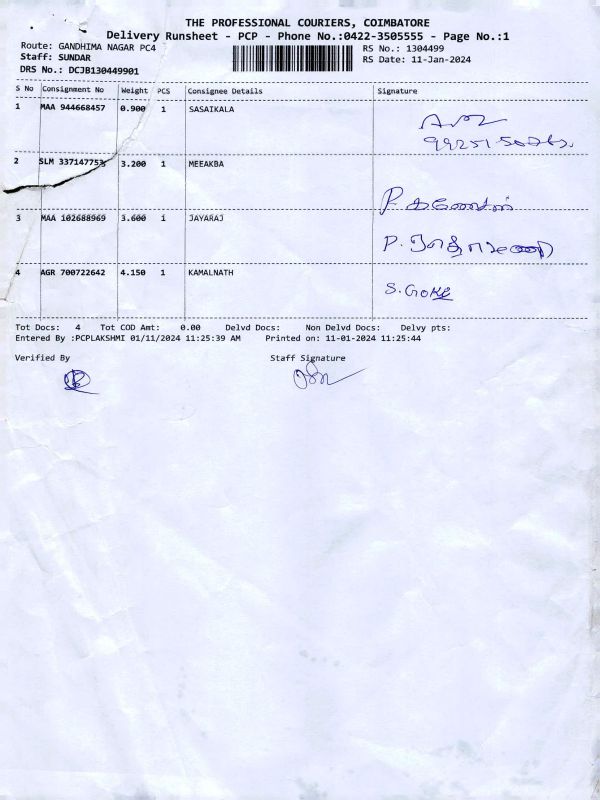 THE PROFESSIONAL COURIERS, COIMBATORE
Delivery Runsheet - PCP - Phone No.:0422-3505555 - Page No.:1
Route: GANDHIMA NAGAR PC4
RS No.: 1304499
Staff: SUNDAR
RS Date: 11-Jan-2024
DRS No.: DCJB130449901
S No Consignment No Weight PCS Consignee Details Signature
1 MAA 944668457 0.900 1 SASAIKALA
2 SLM 337147753 3.200 1 MEEAKBA
3 MAA 102688969 3.600 1 JAYARAJ
4 AGR 700722642 4.150 1 KAMALNATH
S. GOKI
Tot Docs: 4 Tot COD Amt: 0.00 Delvd Docs: Non Delvd Docs: Delvy pts:
Entered By :PCPLAKSHMI 01/11/2024 11:25:39 AM Printed on: 11-01-2024 11:25:44
Verified By Staff Signature